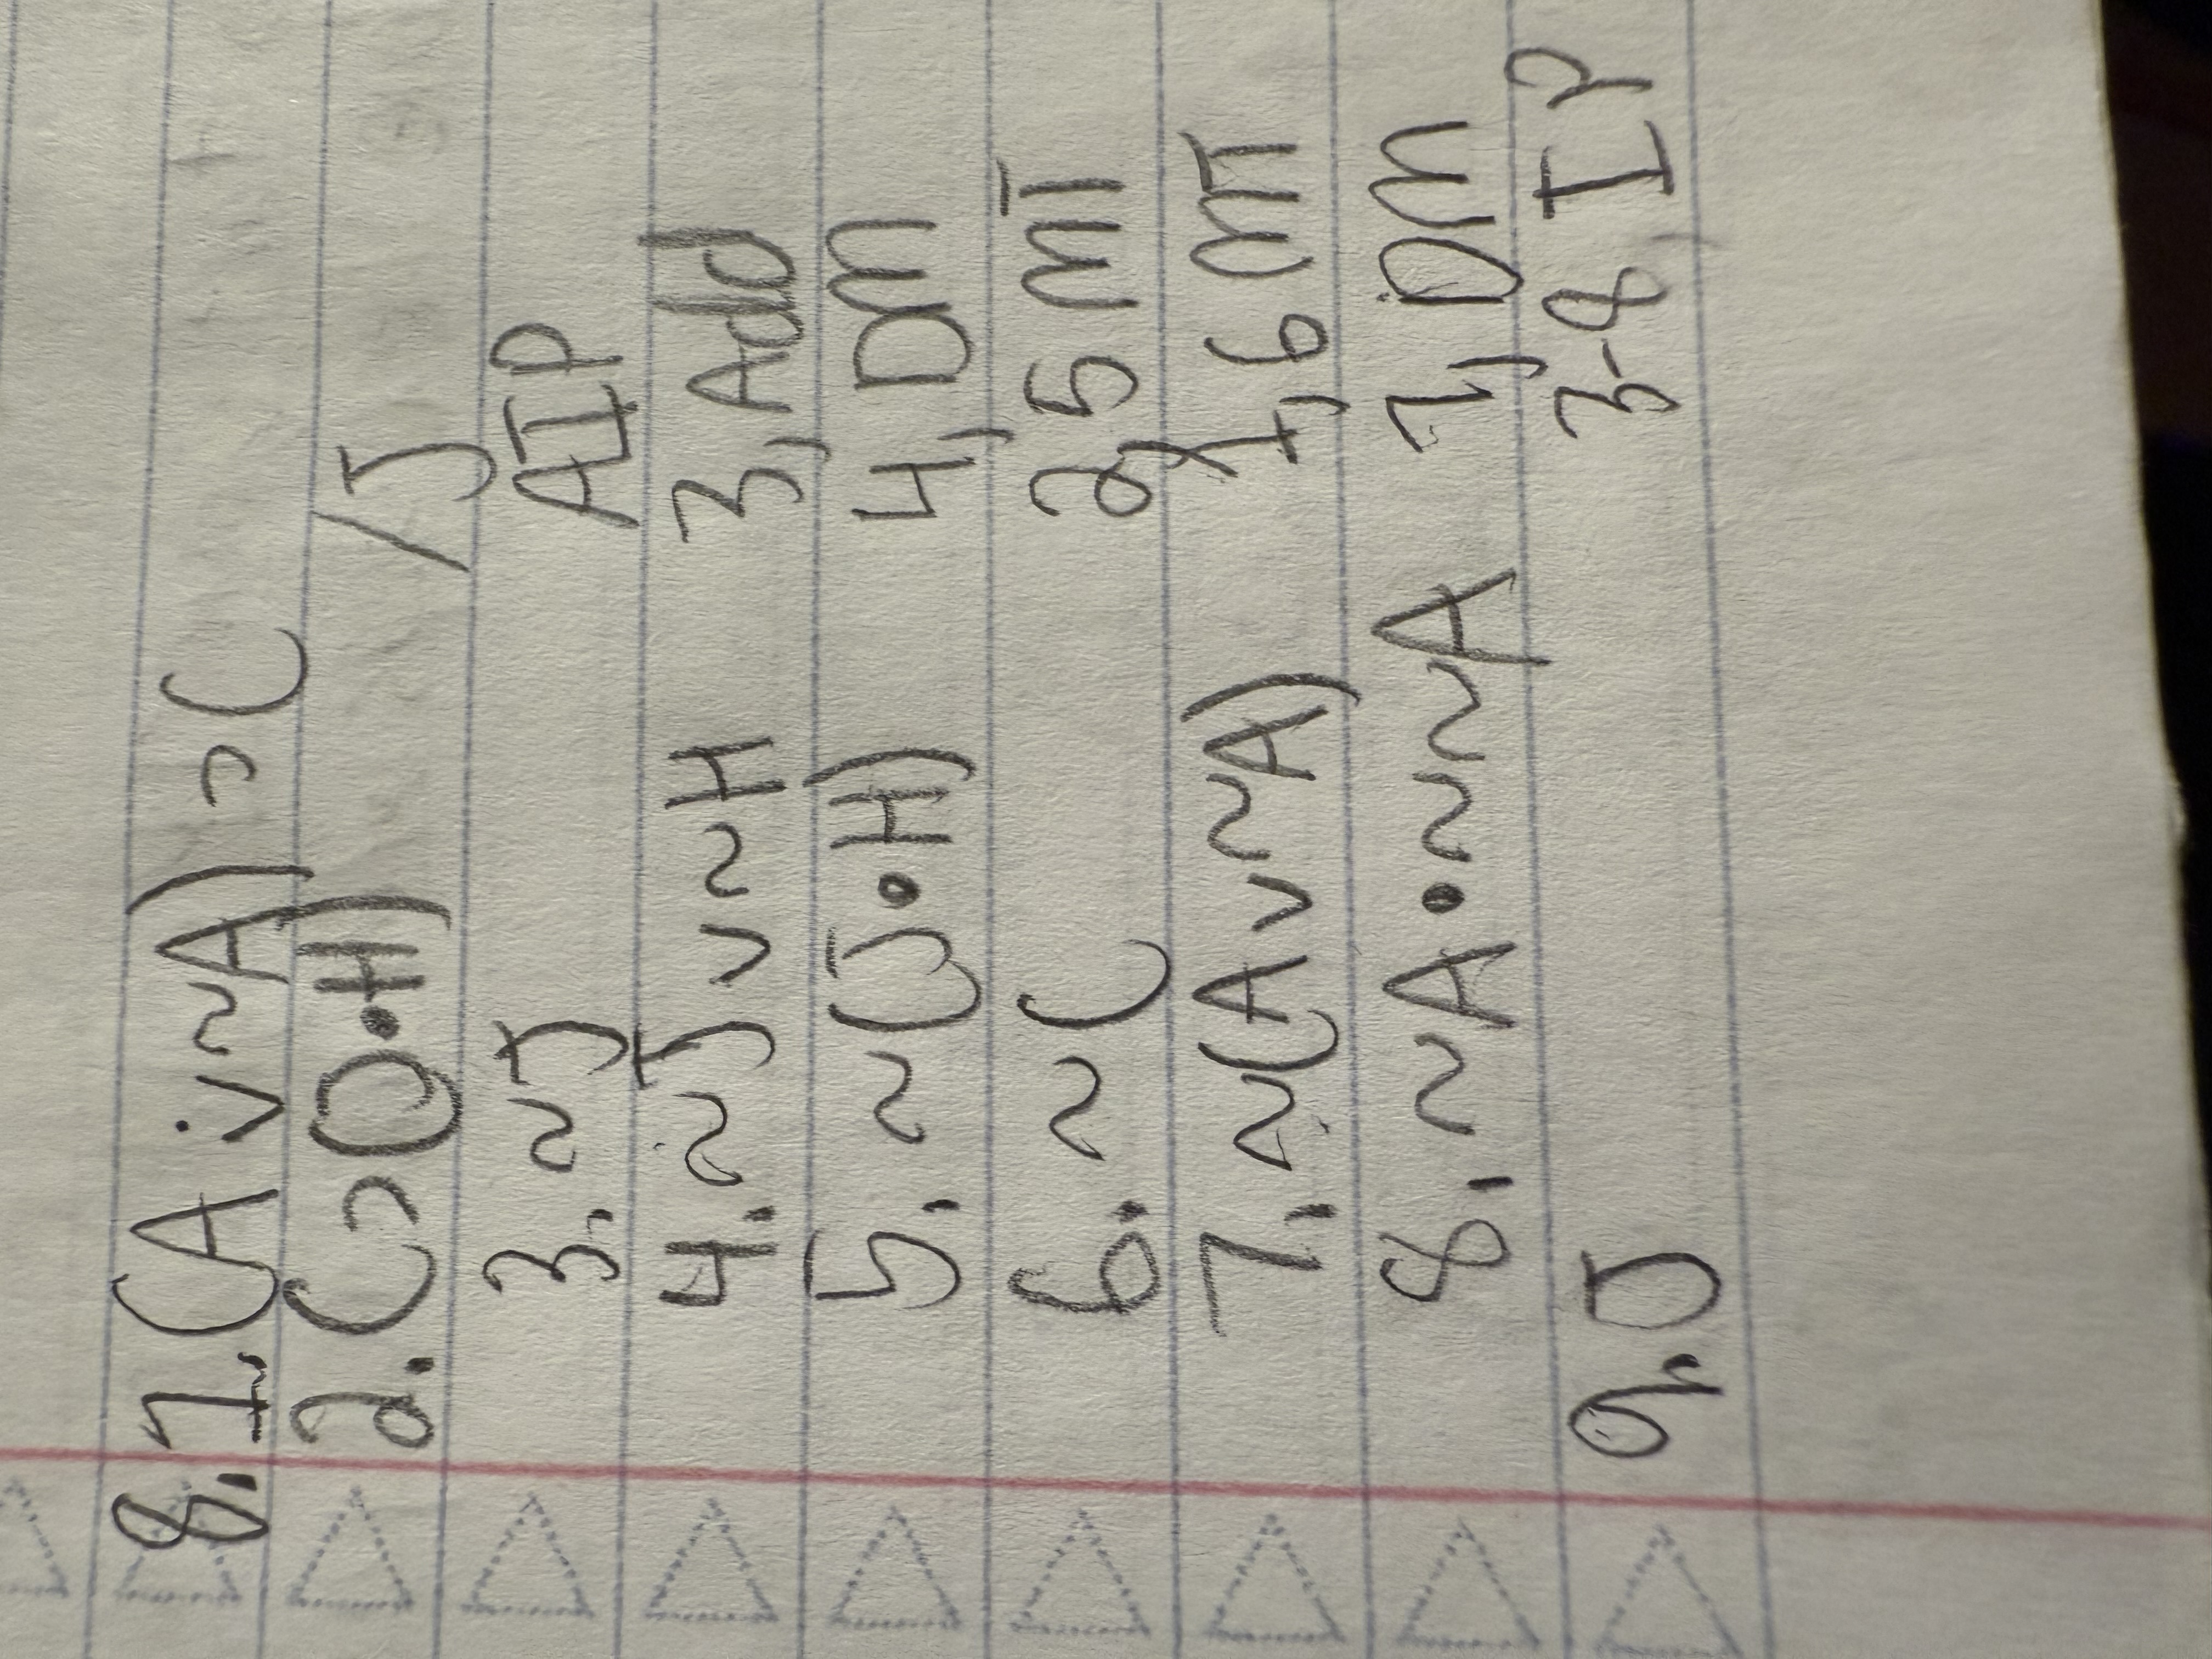 8. 1. (A v ~A) ⊃ C
2. C ⊃ (J • H) /J
3. ~J AIP
4. ~J v ~H 3, Add
5. ~(J • H) 4, DM
6. ~C 2, 5 MT
7. ~(A v ~A) 1, 6 MT
8. ~A • ~~A 7, DM
9. J 3-8, IP